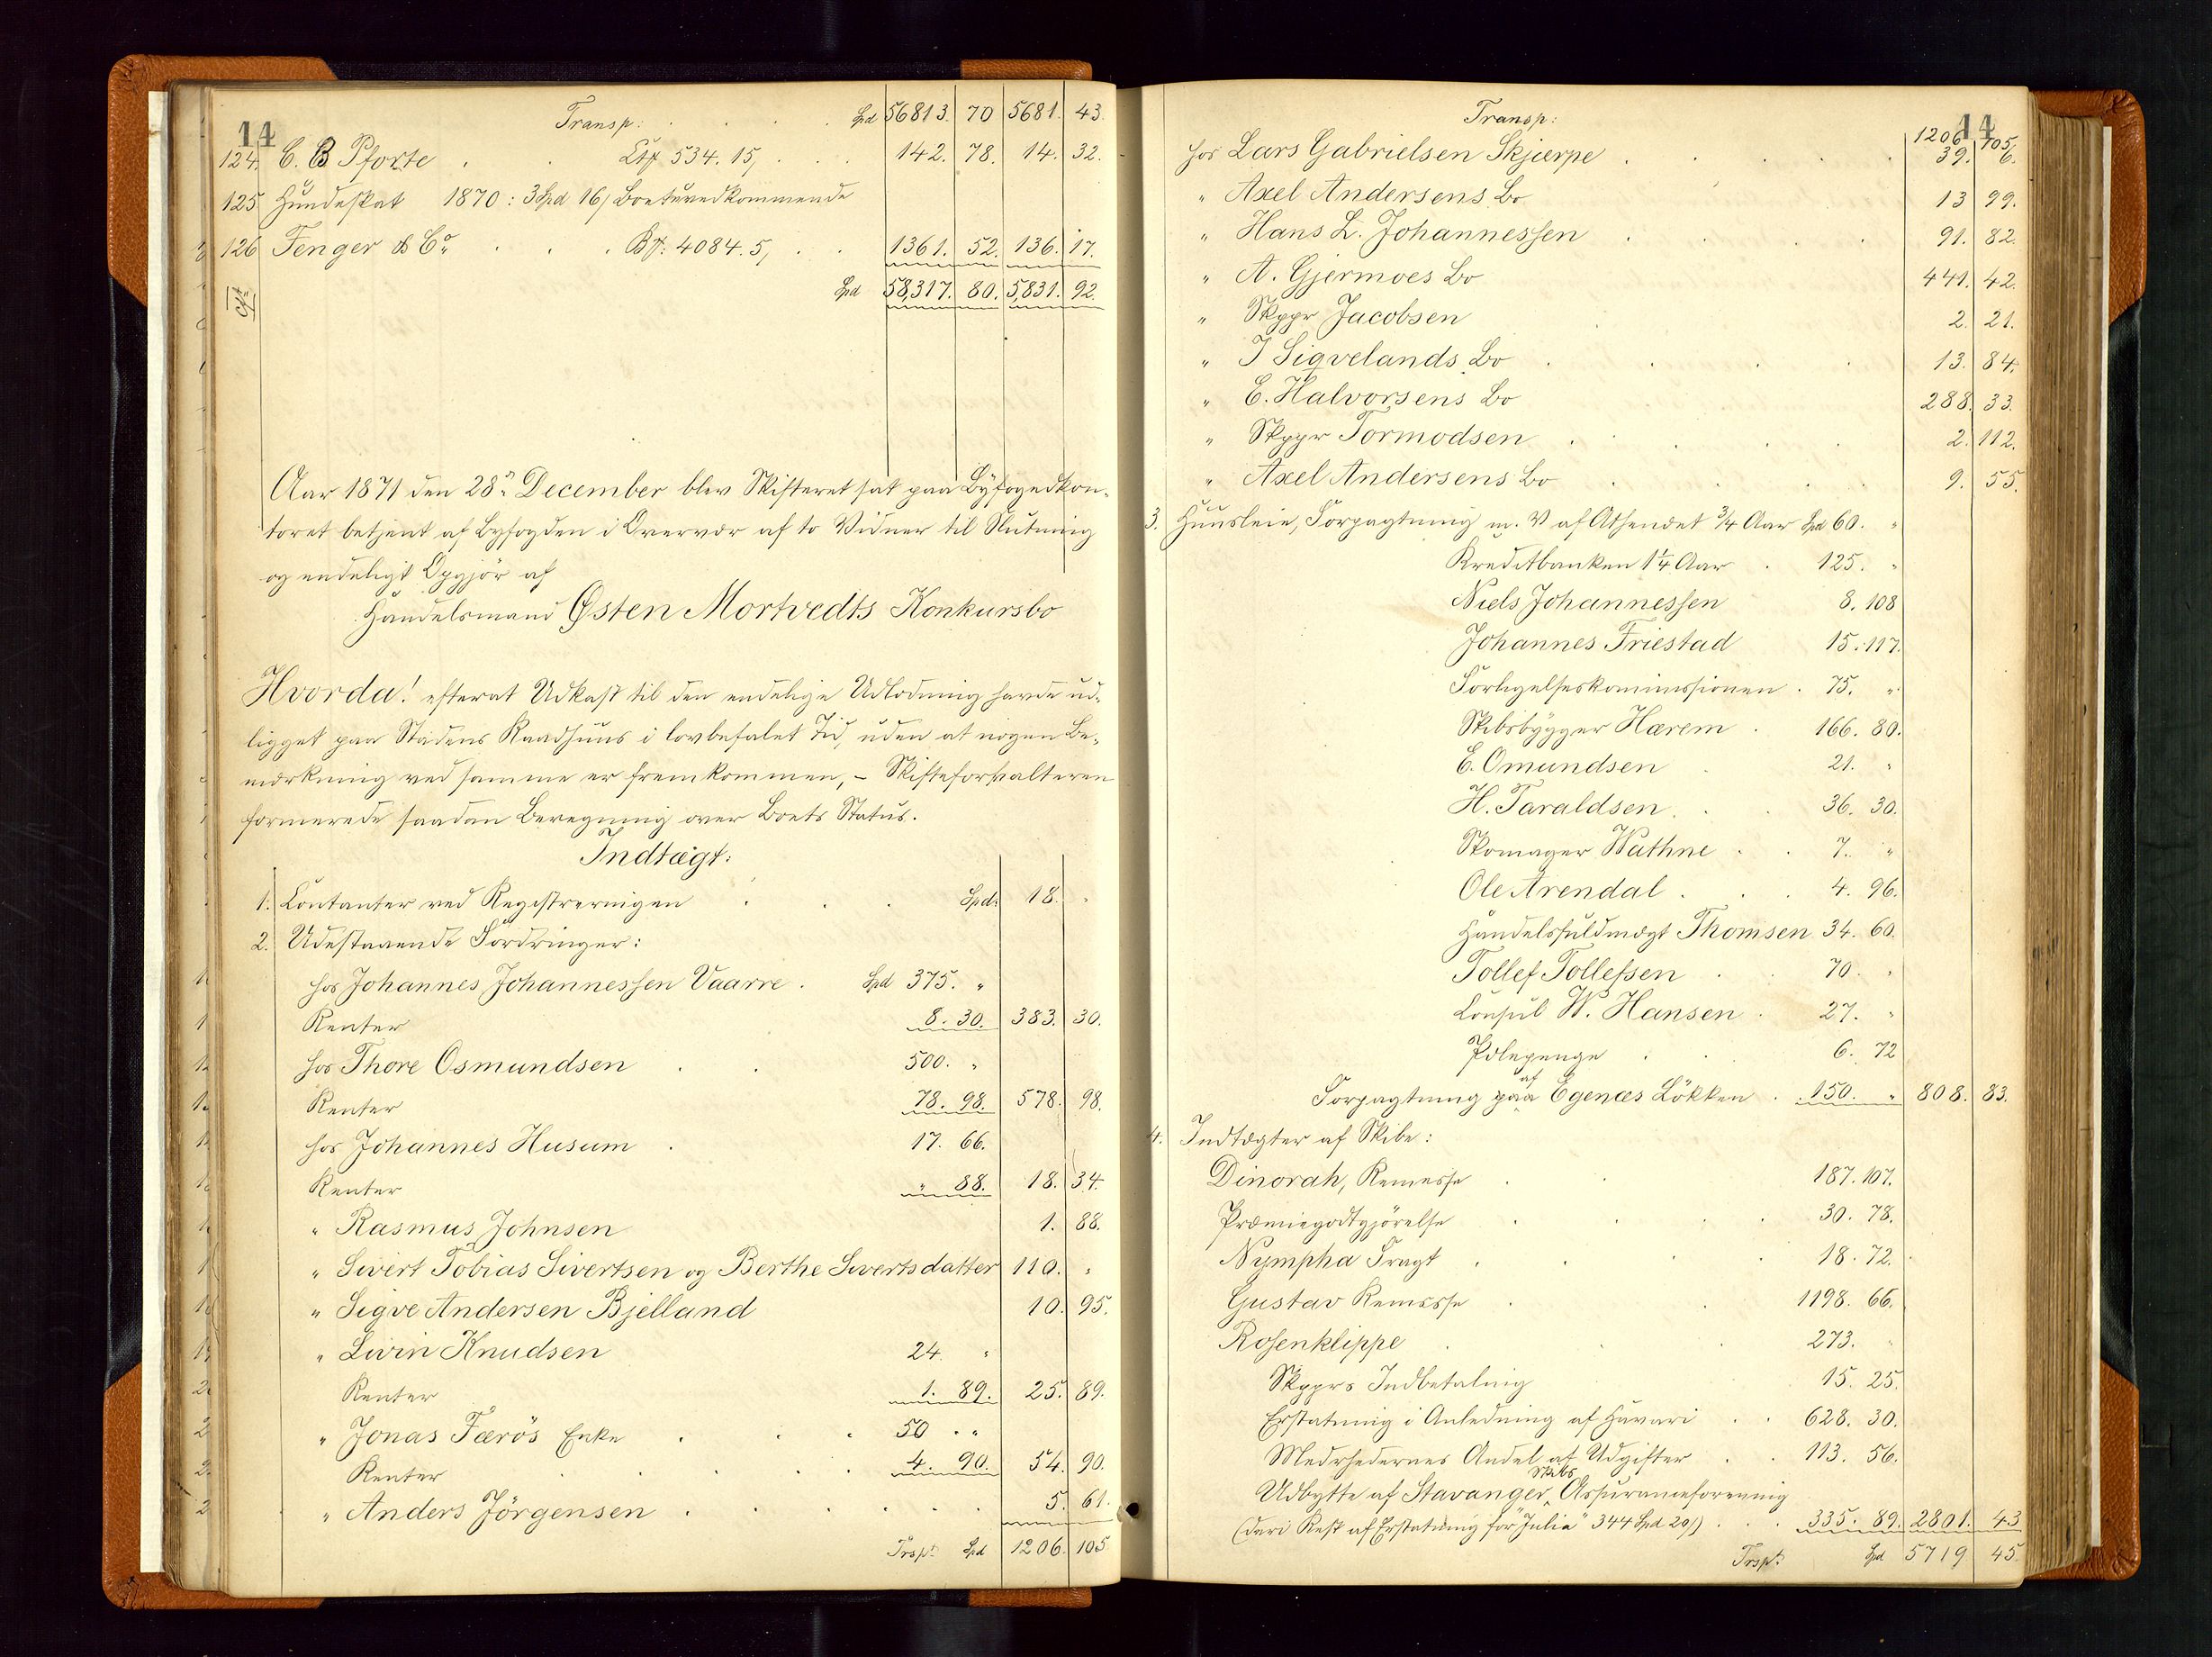 14
Transp: . . . . Spd 56813. 70 5681. 43.
124. C. B Pforte . . . 534. 15, . . . 142. 78. 14. 32.
125 Hundeskat 1870: 3 Spd 16, Boet uvedkommende
126 Fenger & Co. . . . 4084. 5, . . 1361. 52. 136. 17.
Spd 58,317. 80. 5,831. 92.
Aar 1871 den 28de December blev Skifteret sat paa Byfogedkon-
toret betjent af Byfogden i Overvær af to Vidner til Slutning
og endeligt Opgjör af
Handelsmand Østen Mortvedts Konkursbo
Hvorda! efterat Udkast til den endelige Udlodning havde ud-
ligget paa Stadens Raadhuus i lovbefalet Tid, uden at nogen Be-
mærkning ved samme er fremkommen, – Skifteforvalteren
formerede saadan Beregning over Boets Status.
Indtægt:
1. Contanter ved Registreringen . . . Spd. 18. "
2. Udestaaende Fordringer:
hos Johannes Johannessen Vaarre . Spd 375. "
Renter 8. 30. 383. 30.
hos Thore Osmundsen . . 500. "
Renter 78. 98. 578. 98.
hos Johannes Husum . 17. 66.
Renter " 88. 18. 34.
" Rasmus Johnsen 1. 88.
" Sivert Tobias Sivertsen og Berthe Sivertsdatter 110. "
" Sigve Andersen Bjelland 10. 95.
" Sivin Knudsen 24. "
Renter 1. 89. 25. 89.
" Jonas Færös Enke . . . 50 . "
Renter . . . . 4. 90. 54. 90.
" Anders Jörgensen . . . . . . 5. 61.
Trspt. Spd 1206. 105.
14
Transp: 1206. 105.
hos Lars Gabrielsen Skjærpe . . . . . 39. 6.
" Axel Andersens Bo 13 99.
" Hans L. Johannessen . . . . 91. 82.
" A. Gjermoes Bo 441. 42.
" Skppr Jacobsen . 2. 21.
" J Sigvelands Bo . . . . 13. 84.
" E. Halvorsens Bo 288. 33.
" Skppr Tormodsen . . . . 2. 112.
" Axel Andersens Bo . . . . 9. 55.
3. Huusleie, Forpagtning m. V af Athenæet 3/4 Aar Spd 60. "
Kreditbanken 1 1/4 Aar . 125. "
Niels Johannessen 8. 108
Johannes Friestad 15. 117.
Forligelseskommissionen . 75. "
Skibsbygger Hærem . 166. 80.
E. Omundsen . 21. "
H. Taraldsen . . . 36. 30.
Skomager Wathne . . 7. "
Ole Arendal . . . 4. 96.
Handelsfuldmægt Thomsen 34. 60.
Tollef Tollefsen . . 70. "
Consul W. Hansen . 27. "
Pælepenge . . 6. 72
Forpagtning paa af Egenæs Lökken . . 150. " 808. 83.
4. Indtægter af Skibe:
Dinorah, Remesse . . 187. 107.
Præmiegodtgjörelse . . . . 30. 78.
Nympha Fragt . . . . 18. 72.
Gustav Remesse . . 1198. 66.
Rosenklippe . . . 273. "
Skpprs Indbetaling 15. 25.
Erstatning i Anledning af Havari . . 628. 30.
Medrhedernes Andel af Udgifter . . 113. 56.
Udbytte af Stavanger Skibs Assuranceforening
(deri Rest af Erstatning for "Julia" 344 Spd 20,) . . . 335. 89. 2801. 43
Trspt. Spd 5719 45.